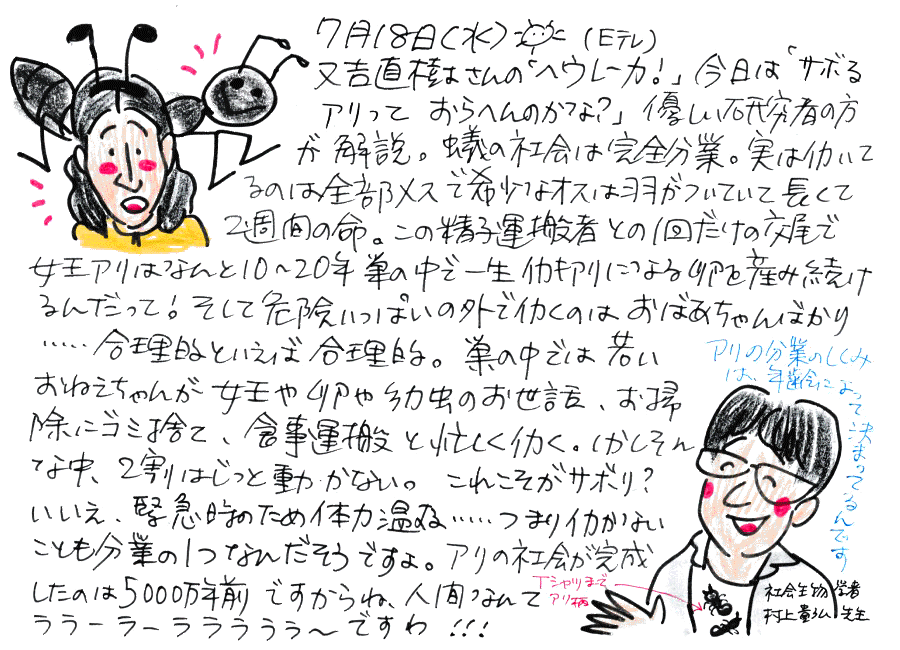 7月18日(水) (Eテレ)
又吉直樹さんの「ヘウレーカ!」今日は「サボる
アリって おらへんのかな?」優しい研究者の方
が解説。蟻の社会は完全分業。実は働いて
るのは全部メスで希少なオスは羽がついていて長くて
2週間の命。この精子運搬者との1回だけの交尾で
女王アリはなんと10〜20年 巣の中で一生 働きアリになる卵を産み続け
るんだって!そして危険いっぱいの外で働くのは おばあちゃんばかり
……合理的といえば合理的。巣の中では若い
おねえちゃんが女王や卵や幼虫のお世話、お掃
除にゴミ捨て、食事運搬と忙しく働く。しかしそん
な中、2割はじっと動かない。これこそがサボり?
いいえ、緊急時のため体力温存……つまり働かない
ことも分業の1つなんだそうですよ。アリの社会が完成
したのは5000万年前ですからね、人間なんて
ララーラーララララら〜ですわ!!!
アリの分業のしくみ
は、年齢によって決まってるんです
Tシャツまで
アリ柄
社会生物学者
村上貴弘先生